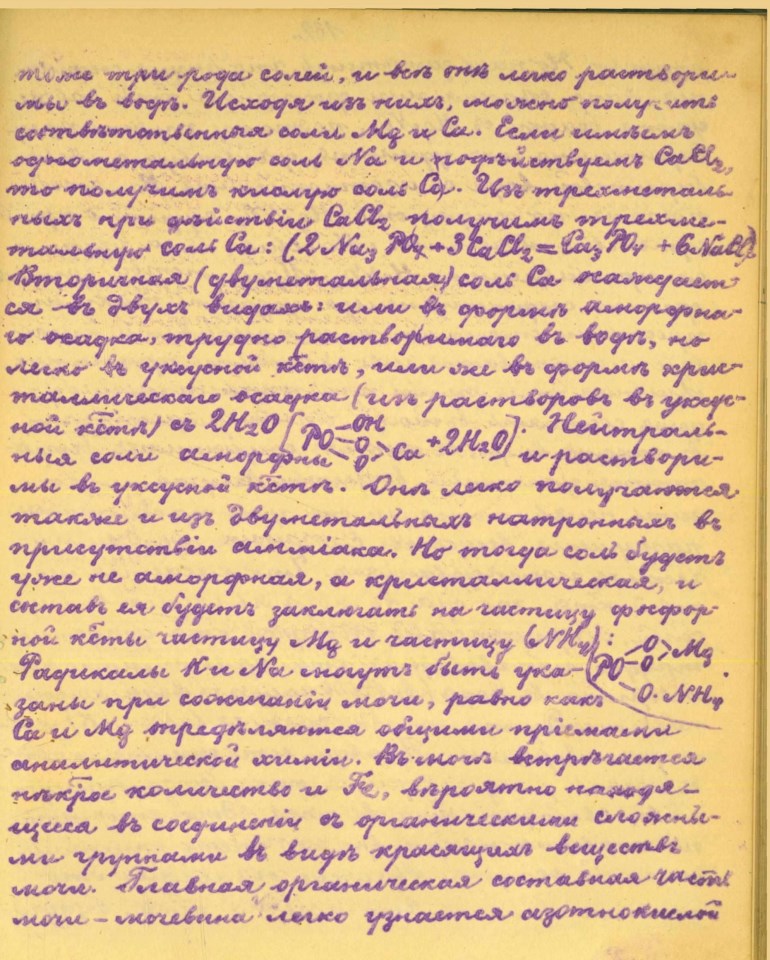 тоже три рода солей, и всѣ онѣ легко раствори-
мы въ водѣ. Исходя изъ нихъ, можно получить
соотвѣтственныя соли Mg и Ca. Если имѣемъ
однометальную соль Na и подѣйствуемъ CaCl2,
то получимъ кислую соль Ca. Изъ трехметаль-
ныхъ при дѣйствіи CaCl2 получимъ трехме-
тальную соль Ca: (2Na3PO4 + 3CaCl2 = Ca3PO4 + 6NaCl).
Вторичная (двуметальная) соль Ca осаждает-
ся въ двухъ видахъ: или въ формѣ аморфна-
го осадка, трудно растворимаго въ водѣ, но
легко въ уксусной кстѣ, или же въ формѣ крис-
таллическаго осадка (изъ растворовъ въ уксус-
ной кстѣ) съ 2H2O [PO–OH =O O>Ca + 2H2O]. Нейтраль-
ныя соли аморфны и раствори-
мы въ уксусной кстѣ. Онѣ легко получаются
также и изъ двуметальныхъ натронныхъ въ
присутствіи амміака. Но тогда соль будетъ
уже не аморфная, а кристаллическая, и
составъ ея будетъ заключать на частицу фосфор-
ной ксты частицу Mg и частицу (NH4): (PO =O O>Mg –O·NH4.
Радикалы K и Na могутъ быть ука-
заны при сожиганіи мочи, равно какъ
Ca и Mg опредѣляются общими пріемами
аналитической химіи. Въ мочѣ встрѣчается
нѣкрое количество и Fe, вѣроятно находя-
щееся въ соединеніи съ органическими сложны-
ми группами въ видѣ красящихъ веществъ
мочи. Главная органическая составная часть
мочи – мочевина легко узнается азотнокислой